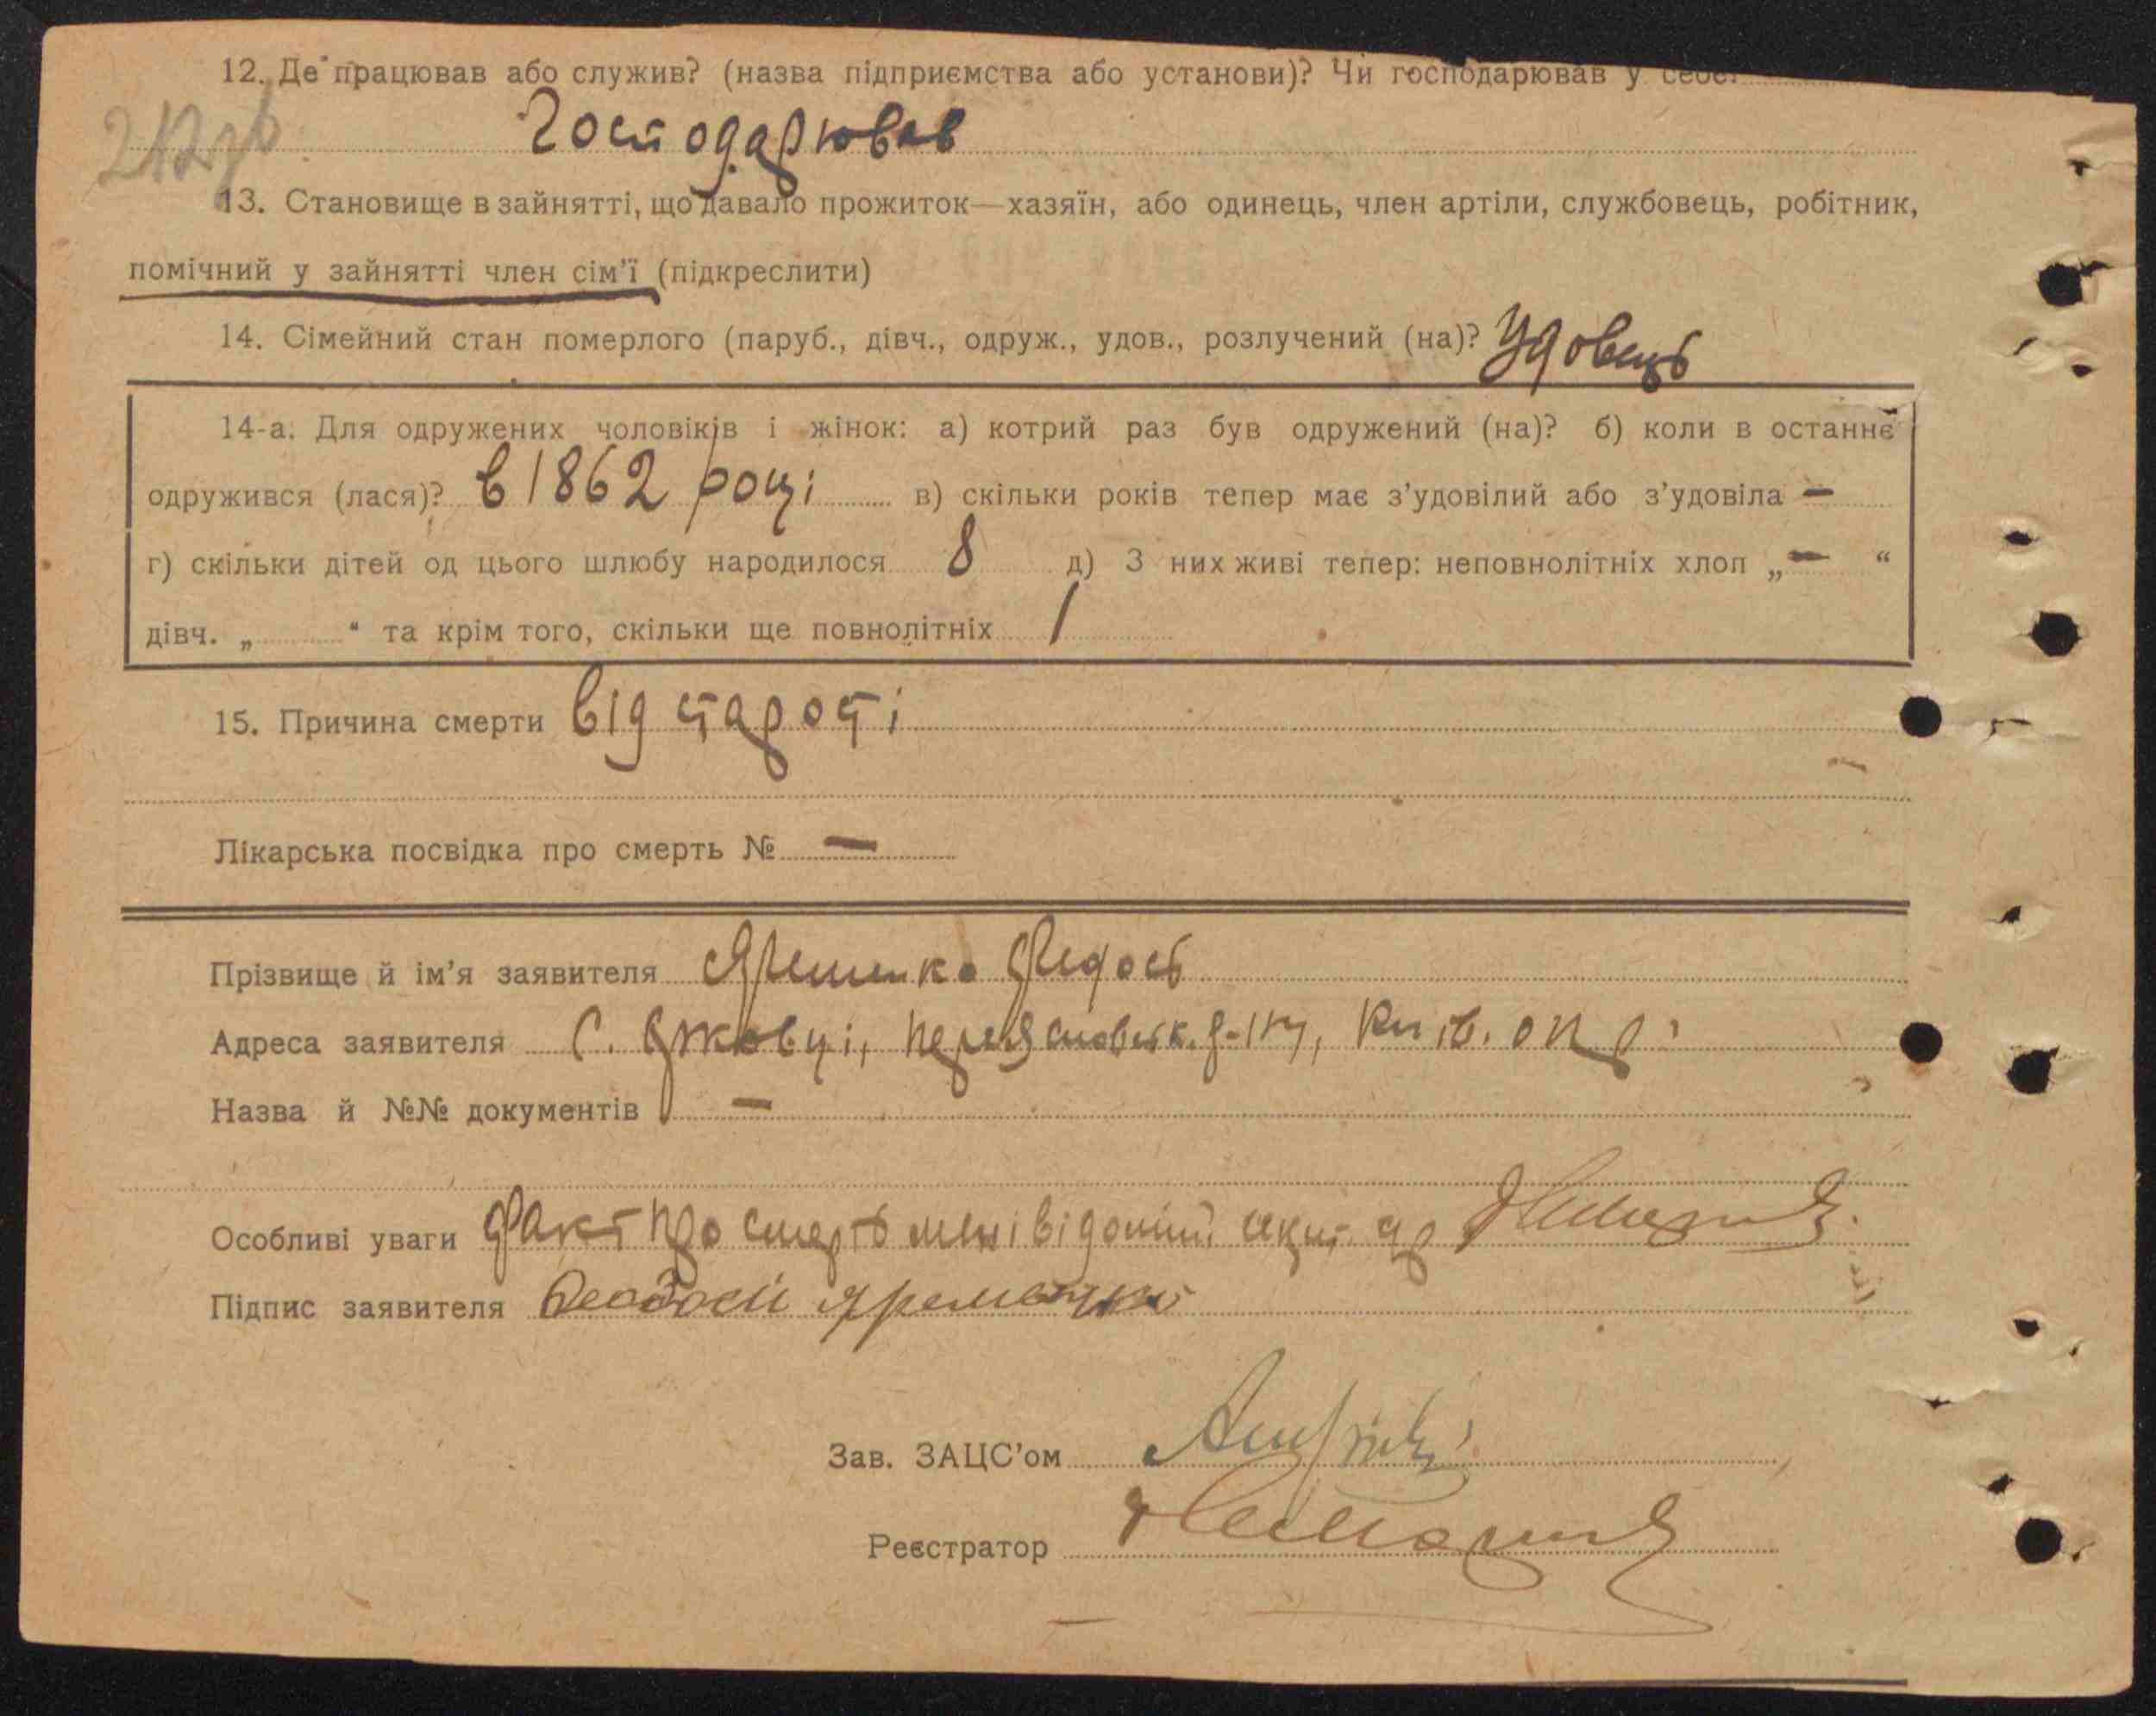 12. Де працював або служив? (назва підприємства або установи)? Чи господарював у себе?
Господарював
13. Становище в зайнятті, що давало прожиток—хазяїн, або одинець, член артіли, службовець, робітник,
помічний у зайнятті член сім'ї (підкреслити)
14. Сімейний стан померлого (паруб., дівч., одруж., удов., розлучений (на)? Удовець
14-а. Для одружених чоловіків і жінок: а) котрий раз був одружений (на)? б) коли в останнє
одружився (лася)? в 1862 році в) скільки років тепер має з'удовілий або з'удовіла —
г) скільки дітей од цього шлюбу народилося 8 д) З них живі тепер: неповнолітніх хлоп „ — “
дівч. „ “ та крім того, скільки ще повнолітніх 1
15. Причина смерти від старості
Лікарська посвідка про смерть № —
Прізвище й ім'я заявителя Федось
Адреса заявителя С. р-ну, Київ. окр.
Назва й №№ документів —
Особливі уваги Факт про смерть мені відомий
Підпис заявителя Феодосій Яременко
Зав. ЗАЦС'ом
Реєстратор